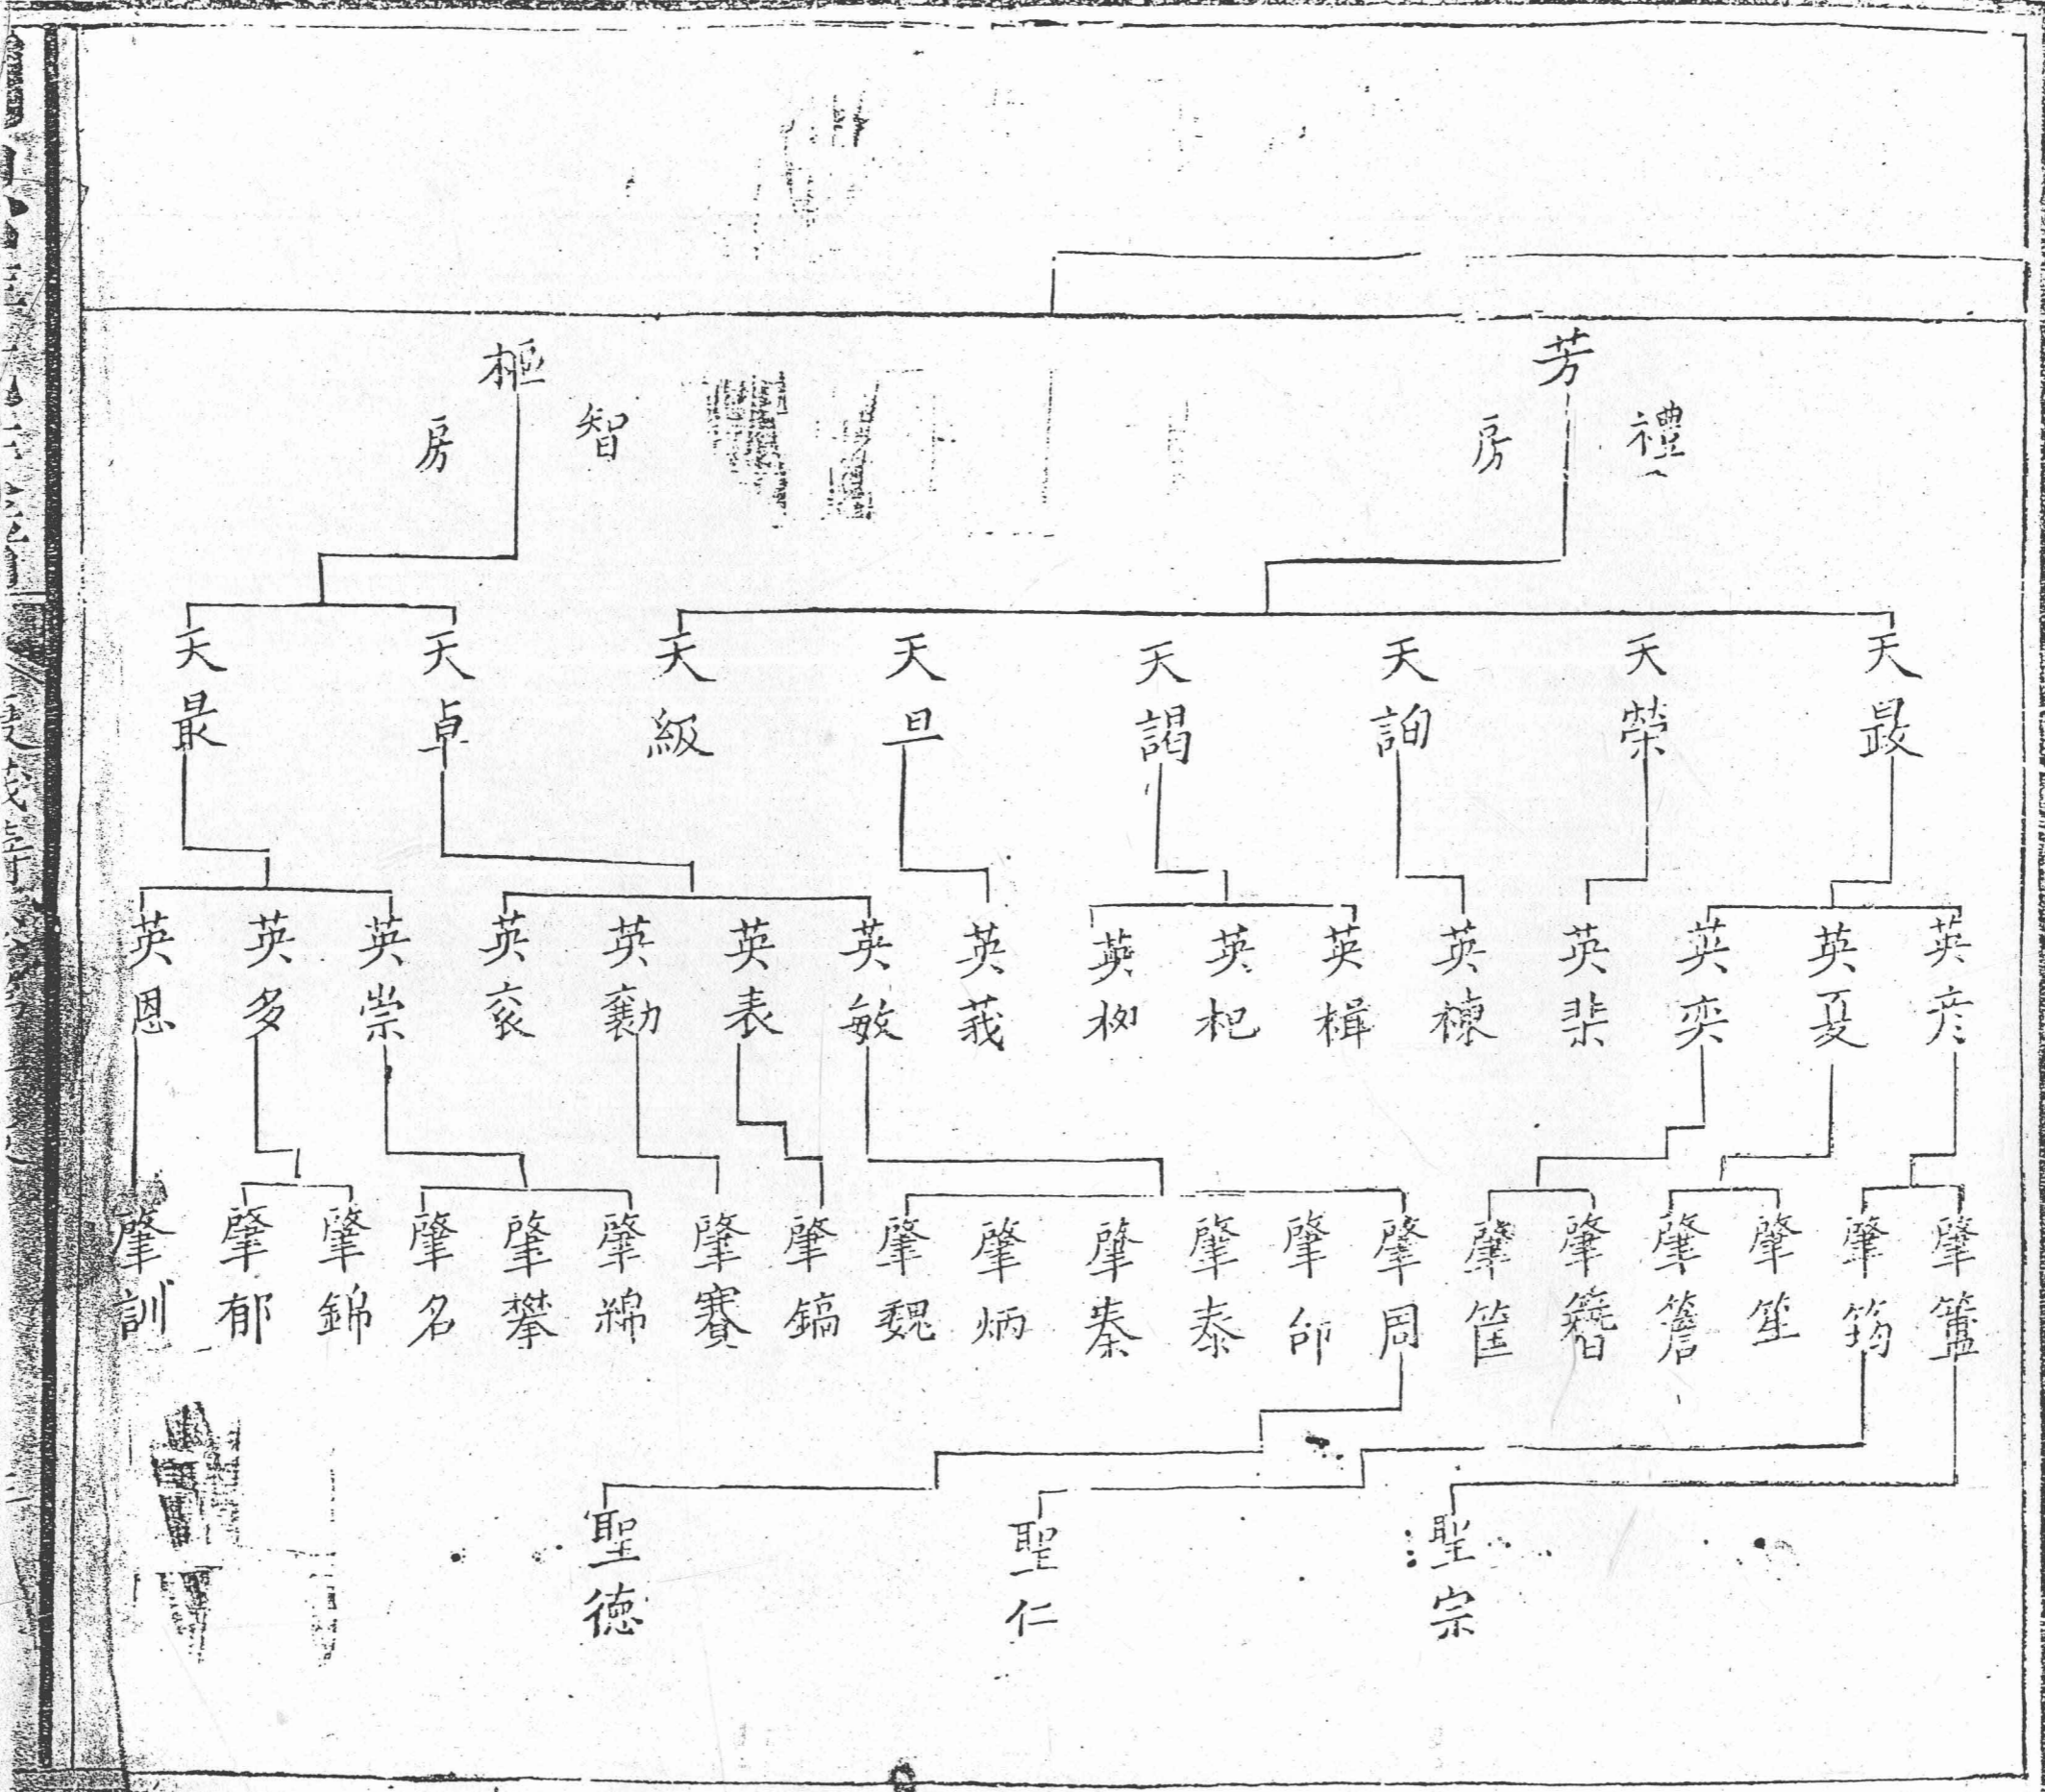 芳
禮房
樞
智房
天晸
天榮
天詢
天謁
天旦
天級
天卓
天最
英彦
英夏
英奕
英棐
英棟
英楫
英杞
英栁
英莪
英敏
英表
英勷
英衮
英崇
英多
英恩
肇簠
肇筠
肇笙
肇簷
肇簪
肇筐
肇周
肇邰
肇泰
肇秦
肇炳
肇魏
肇鎬
肇賽
肇綿
肇攀
肇名
肇錦
肇郁
肇訓
聖宗
聖仁
聖德